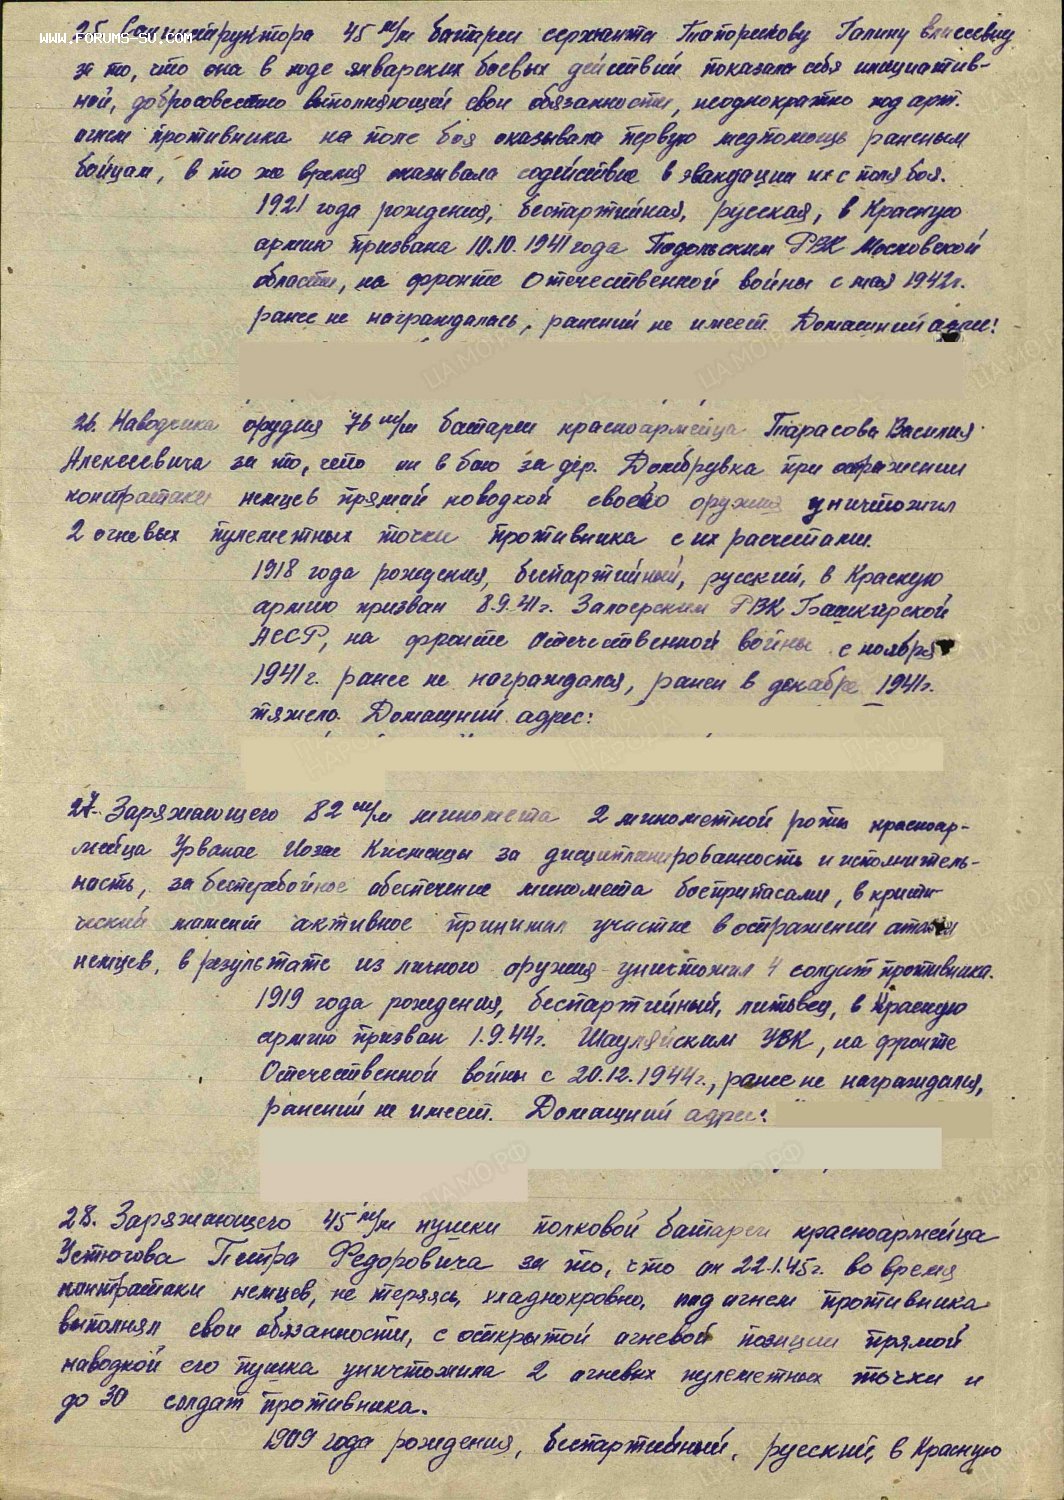 25. Санинструктора 45 м/м батареи сержанта Топорикову Галину
WWW.FORUMS-SU.COM
за то, что она в ходе январских боевых действий показала себя инициатив-
ной, добросовестно выполняющей свои обязанности, неоднократно под арт.
огнем противника на поле боя оказывала первую медпомощь раненым
бойцам, в то же время оказывала содействие в эвакуации их с поля боя.
1921 года рождения, беспартийная, русская, в Красную
армию призвана 10.10.1941 года Подольским РВК Московской
области, на фронте Отечественной войны с мая 1942г.
ранее не награждалась, ранений не имеет. Домашний адрес:
26. Наводчика орудия 76 м/м батареи красноармейца Тарасова Василия
Алексеевича за то, что он в бою за дер. Домбрувка при отражении
контратаки немцев прямой наводкой своего оружия уничтожил
2 огневых пулеметных точки противника с их расчетами.
1918 года рождения, беспартийный, русский, в Красную
армию призван 8.9.41г. РВК Башкирской
АССР, на фронте Отечественной войны с ноября
1941г. ранее не награждался, ранен в декабре 1941г.
тяжело. Домашний адрес:
27. Заряжающего 82 м/м миномета 2 минометной роты красноар-
мейца Урванас за дисциплинированность и исполнитель-
ность, за бесперебойное обеспечение миномета боеприпасами, в крити-
ческий момент активное принимал участие в отражении атаки
немцев, в результате из личного оружия уничтожил 4 солдат противника.
1919 года рождения, беспартийный, литовец, в Красную
армию призван 1.9.44г. Шауляйским УВК, на фронте
Отечественной войны с 20.12.1944г., ранее не награждался,
ранений не имеет. Домашний адрес:
28. Заряжающего 45 м/м пушки полковой батареи красноармейца
Устюгова Петра Федоровича за то, что он 22.1.45г. во время
контратаки немцев, не теряясь, хладнокровно, под огнем противника
выполнял свои обязанности, с открытой огневой позиции прямой
наводкой его пушка уничтожила 2 огневых пулеметных точки и
до 30 солдат противника.
1909 года рождения, беспартийный, русский, в Красную